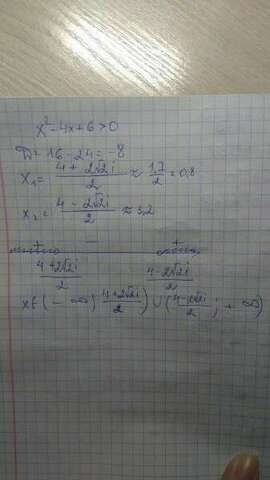 x² - 4x + 6 > 0
D = 16 - 24 = -8
x₁ = (4 + 2√2i)/2 ≈ 1,7/2 = 0,8
x₂ = (4 - 2√2i)/2 ≈ 3,2
(4 + 2√2i)/2 (4 - 2√2i)/2
x ∈ (-∞; (4 + 2√2i)/2) ∪ ((4 - 2√2i)/2; +∞)